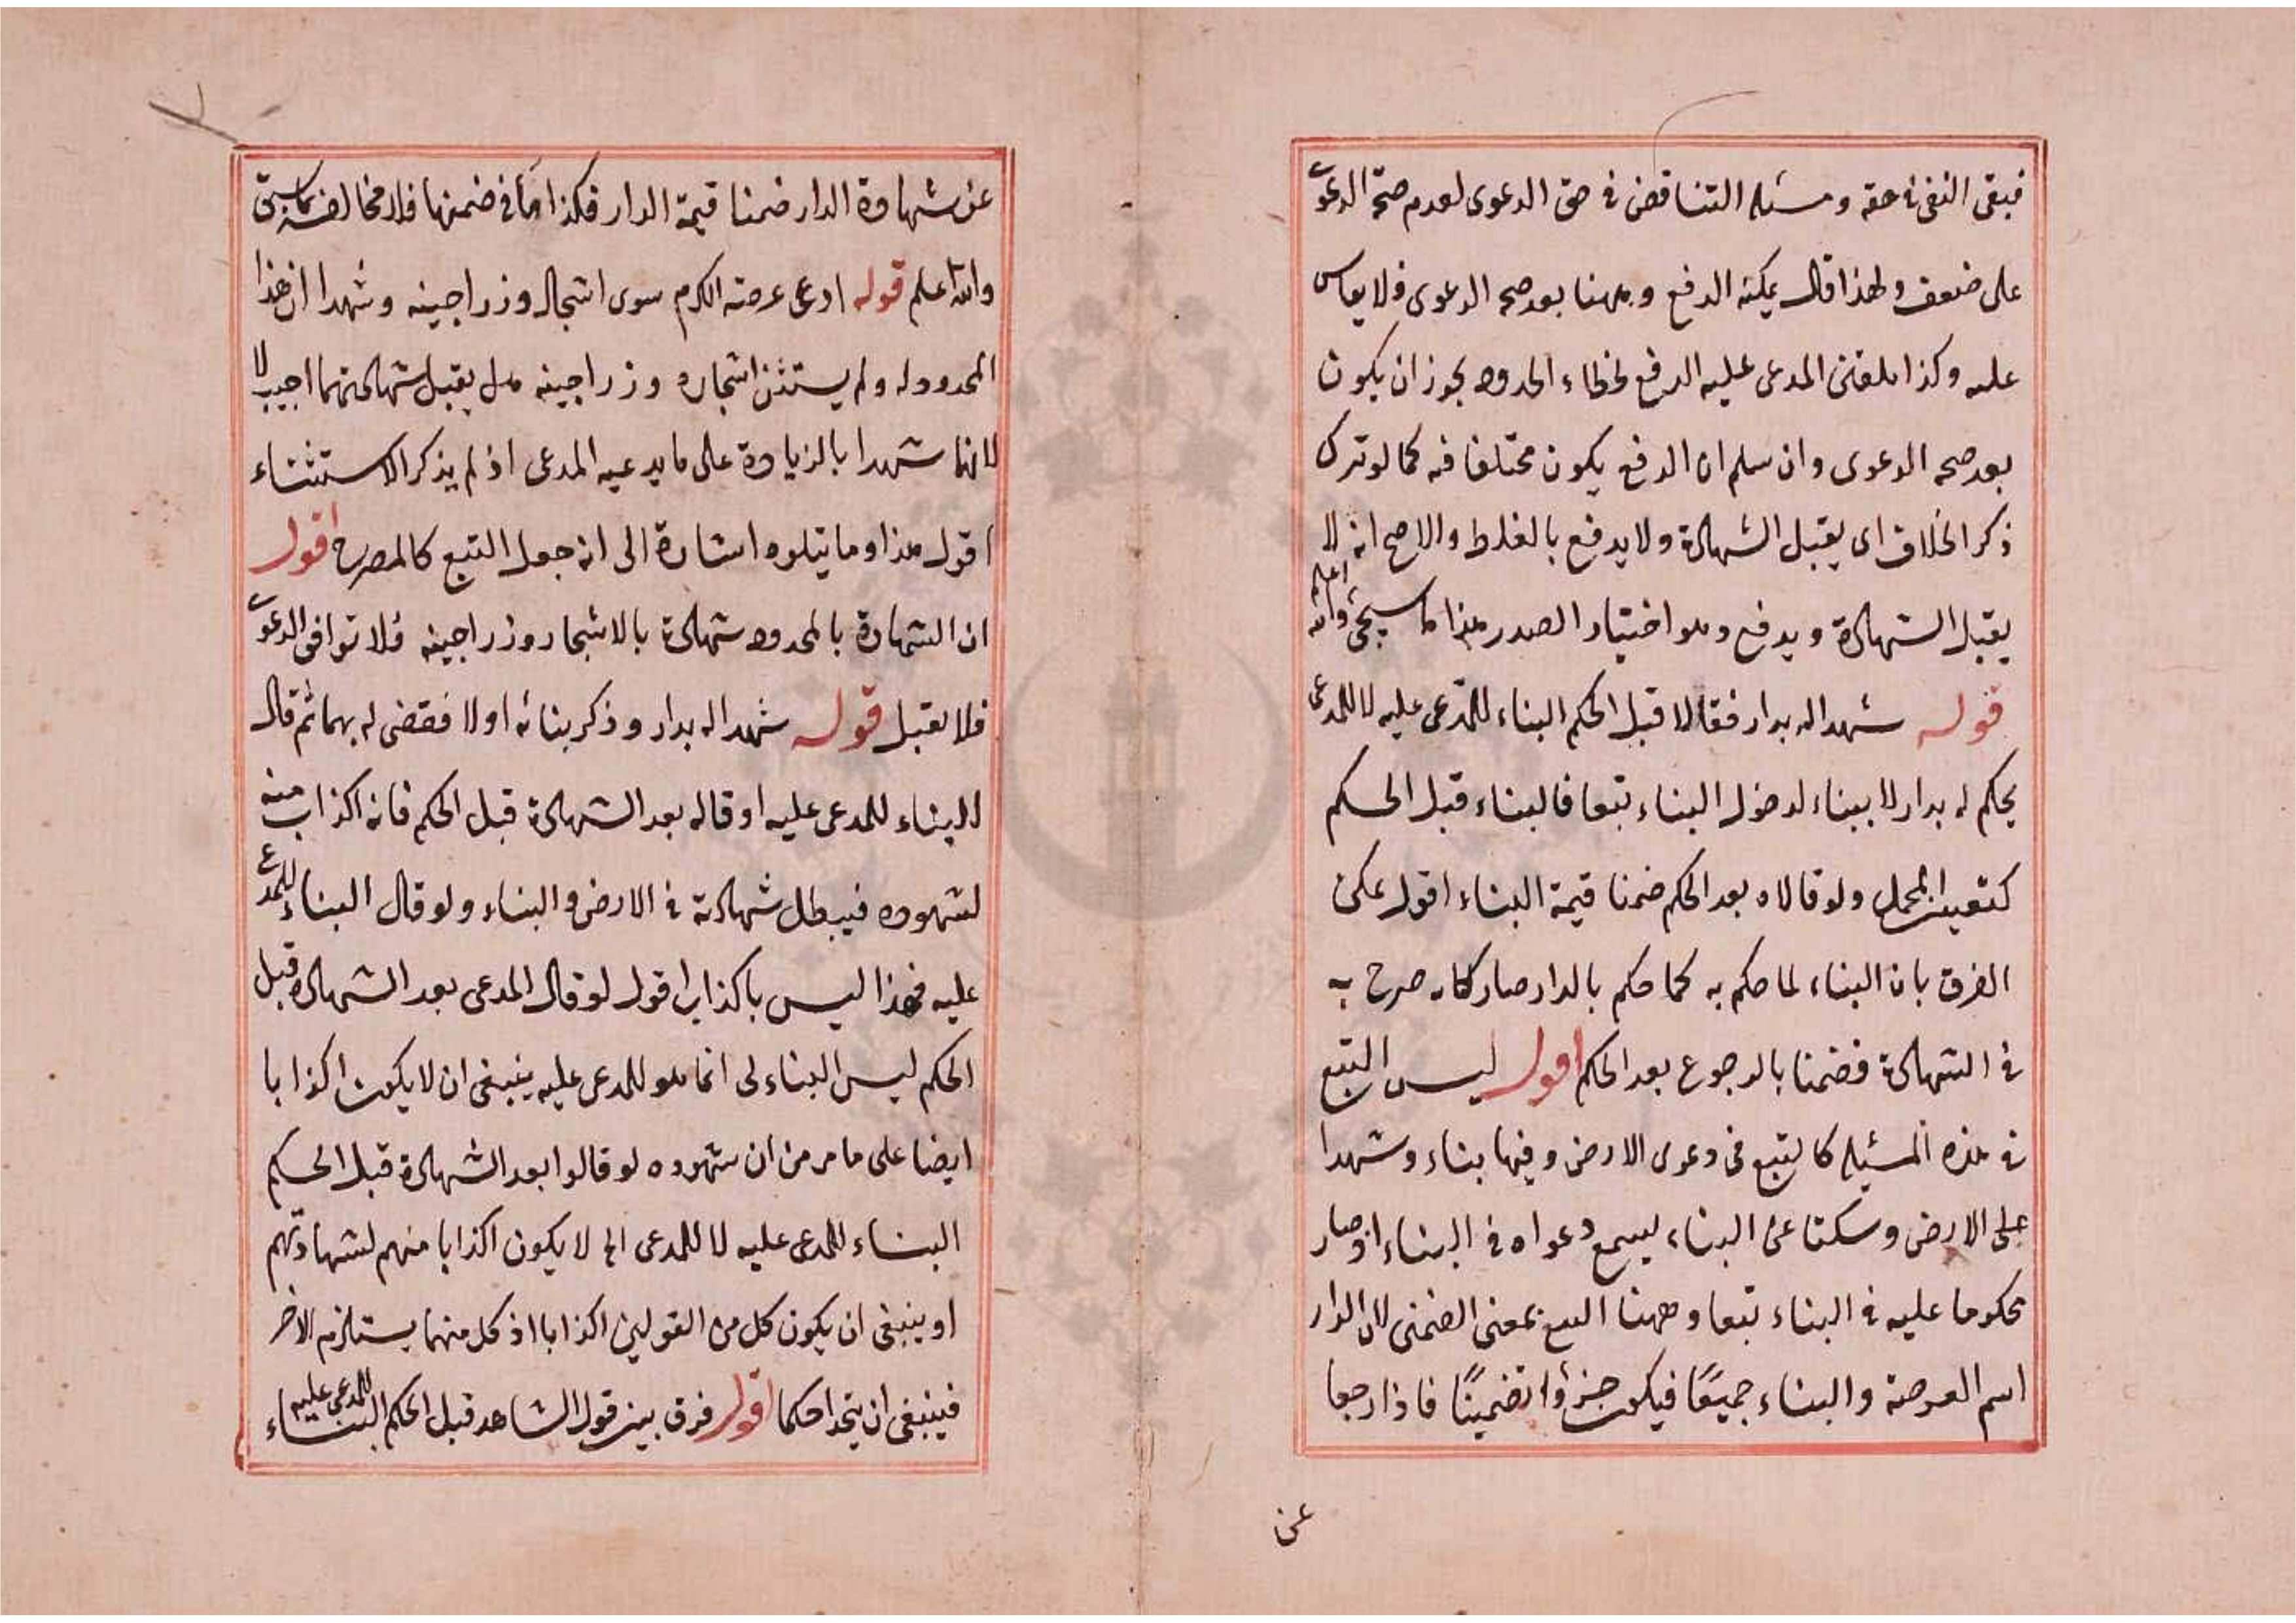 فبقى النفى فى حقه ومسئله التناقض فى حق الدعوى لعدم صحة الدعوى
على ضعف ولهذا قال يمكنه الدفع وههنا بعد صحه الدعوى فلا يقاس
عليه وكذا تلقين المدعى عليه الدفع لخطاء الحدود يجوز ان يكون
بعد صحه الدعوى وان سلم ان الدفع يكون مختلفا فيه كما لو ترك
ذكر الخلاف اى يقبل الشهادة ولا يدفع بالغلط والاصح انه لا
يقبل الشهادة ويدفع وهو اختيار الصدر هذا كما سيجئ والله اعلم
قوله شهدا له بدار فقالا قبل الحكم البناء للمدعى عليه لا للمدعى
يحكم له بدار لا ببناء لدخول البناء تبعا فالبناء قبل الحكم
كتعيين المجمل ولو قالاه بعد الحكم ضمنا قيمة البناء اقول يمكن
الفرق بان البناء لما حكم به كما حكم بالدار صار كانه صرح به
فى الشهادة فضمنا بالرجوع بعد الحكم اقول ليس التبع
فى هذه المسئله كالتبع فى دعوى الارض وفيها بناء وشهدا
على الارض وسكتا عن البناء يسمع دعواه فى البناء اذ صار
محكوما عليه فى البناء تبعا وههنا التبع بمعنى الضمنى لان الدار
اسم العرصة والبناء جميعًا فيكون جزءًا تضمينًا فاذا رجعا
عن
عن شهادة الدار ضمنا قيمة الدار فكذا ما فى ضمنها فلا مخالفة كما سبق
والله اعلم قوله ادعى عرصته الكرم سوى اشجاره وزراجينه وشهدا ان هذا
المحدود له ولم يستثن اشجاره وزراجينه هل يقبل شهادتهما اجيب لا
لانهما شهدا بالزيادة على ما يدعيه المدعى اذ لم يذكر الاستثناء
اقول هذا وما يتلوه اشارة الى انه جعل التبع كالمصرح اقول
ان الشهادة بالمحدود شهادة بالاشجار وزراجينه فلا توافق الدعوى
فلا يقبل قوله شهدا له بدار وذكر بنائه اولا فقضى له بهما ثم قال
البناء للمدعى عليه او قاله بعد الشهادة قبل الحكم فانه اكذاب منه
لشهوده فيبطل شهادته فى الارض والبناء ولو قال البناء للمدعى
عليه فهذا ليس باكذاب اقول لو قال المدعى بعد الشهادة قبل
الحكم ليس البناء لى انما هو للمدعى عليه ينبغى ان لا يكون اكذابا
ايضا على ما مر من ان شهوده لو قالوا بعد الشهادة قبل الحكم
البناء للمدعى عليه لا للمدعى الخ لا يكون اكذابا منهم لشهادتهم
او ينبغى ان يكون كل من القولين اكذابا اذ كل منهما يستلزم الاخر
فينبغى ان يتحدا حكما اقول فرق بين قول الشاهد قبل الحكم البناء للمدعى عليه